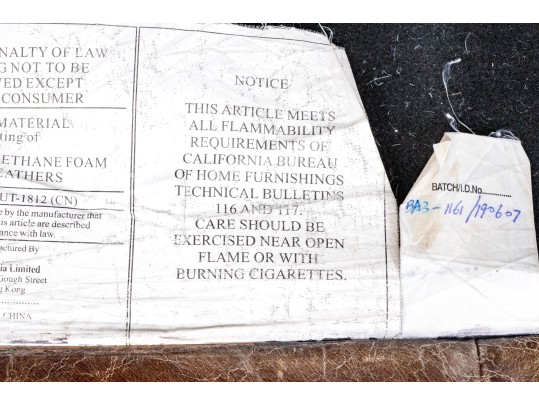 NALTY OF LAW
G NOT TO BE
VED EXCEPT
CONSUMER
MATERIAL
ting of
ETHANE FOAM
EATHERS
UT-1812 (CN)
e by the manufacturer that
is article are described
ance with law.
actured By
ia Limited
Gough Street
g Kong
CHINA
NOTICE
THIS ARTICLE MEETS
ALL FLAMMABILITY
REQUIREMENTS OF
CALIFORNIA BUREAU
OF HOME FURNISHINGS
TECHNICAL BULLETINS
116 AND 117.
CARE SHOULD BE
EXERCISED NEAR OPEN
FLAME OR WITH
BURNING CIGARETTES.
BATCH/I.D.No............
BA3-1161/190607